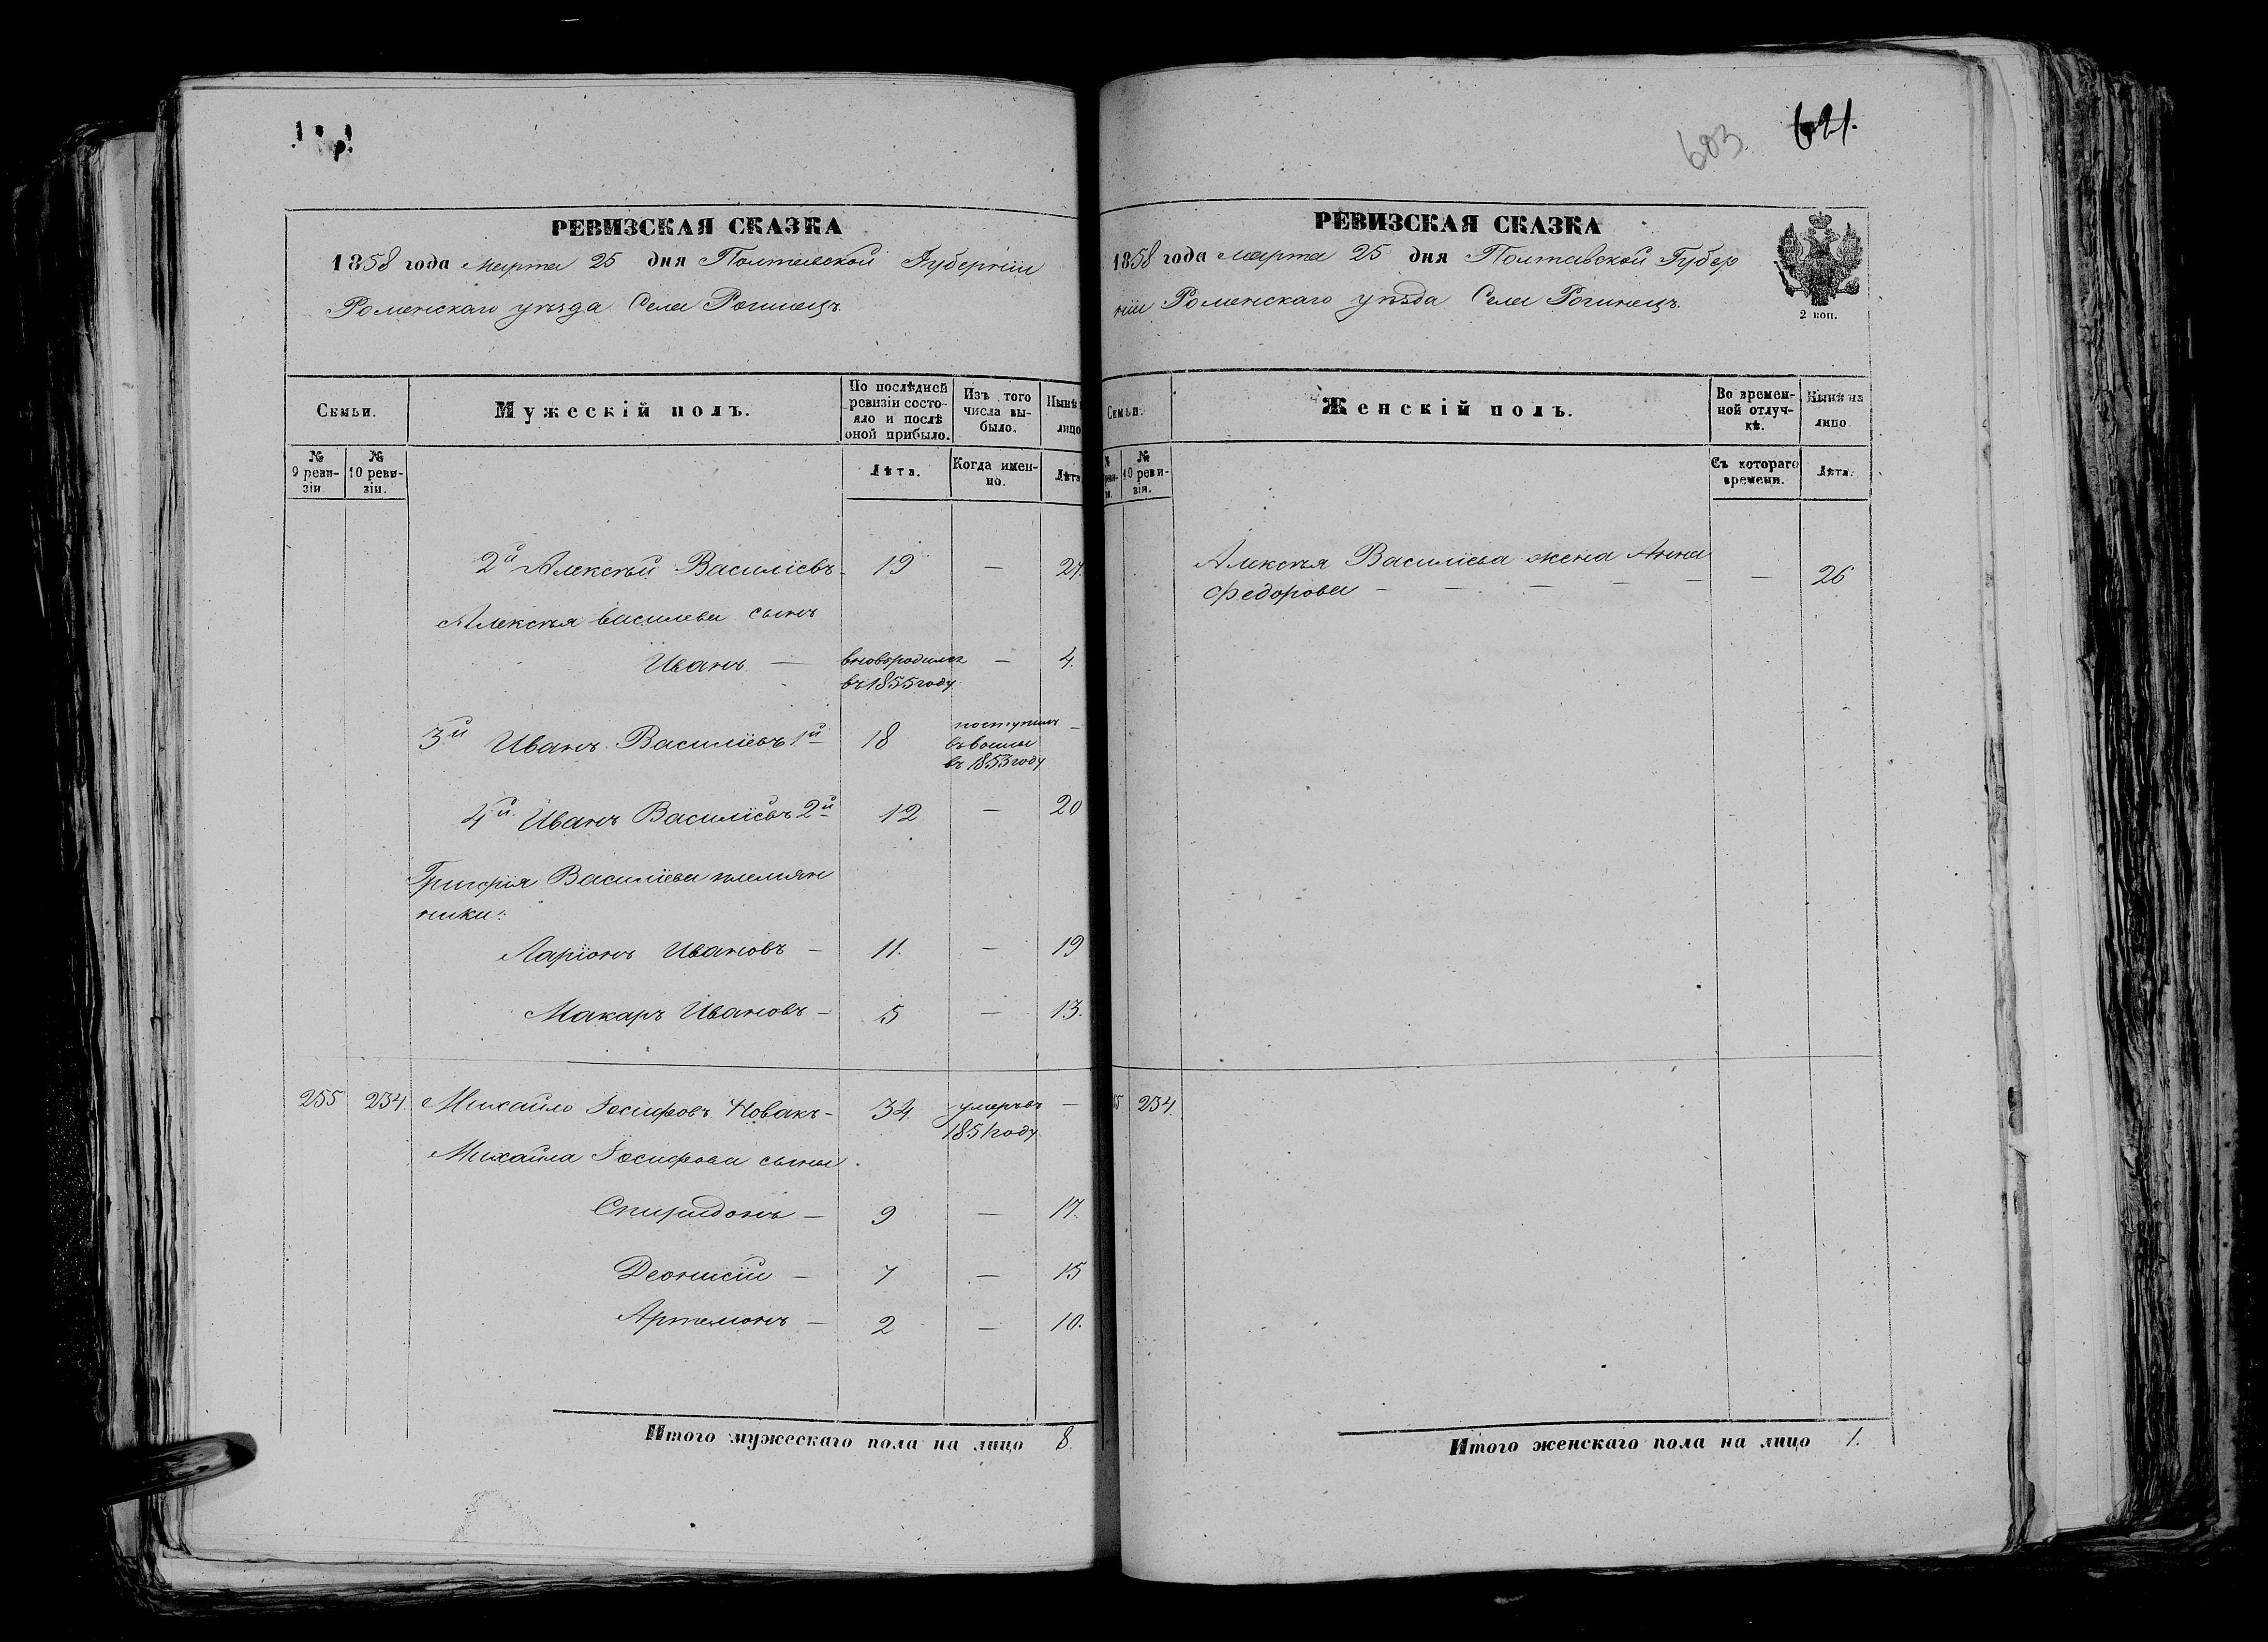 РЕВИЗСКАЯ СКАЗКА
1858 года марта 25 дня Полтавской Губерніи
Роменскаго уѣзда Села Рогинецъ.
Семьи.
Мужескій полъ.
По послѣдней ревизіи состояло и послѣ оной прибыло.
Изъ того числа выбыло.
Нынѣ
лицо
№ 9 ревизіи
№ 10 ревизіи.
Лѣта.
Когда именно.
Лѣта
2й Алексѣй Василіевъ 19 —
Алексѣя василева сынъ
Иванъ — вновьродился въ 1855 году — 4.
3й Иванъ Василіевъ 1й 18 поступилъ въ 1853 году —
4й Иванъ Василіевъ 2й 12 — 20
Григорія Василіева племян
ники:
Ларіонъ Ивановъ — 11. — 19
Макаръ Ивановъ — 5 — 13.
255 234 Михайло Іосифовъ Новакъ — 34. умеръ въ 1851 году —
Михайла Іосифова сыны
Спиридонъ — 9 — 17.
Деонисій — 7 — 15
Артемонъ — 2 — 10.
Итого мужескаго пола на лицо 8.
603 621.
РЕВИЗСКАЯ СКАЗКА
1858 года марта 25 дня Полтавской Губер
ніи Роменскаго уѣзда Села Рогинецъ.
2 коп.
Семьи.
Женскій полъ.
Во временной отлучкѣ.
Нынѣ на лицо.
№ 10 ревизія.
Съ котораго времени.
Лѣта.
Алексѣя Василіева жена Анна
Федорова — — — — — — 26
234
Итого женскаго пола на лицо 1.